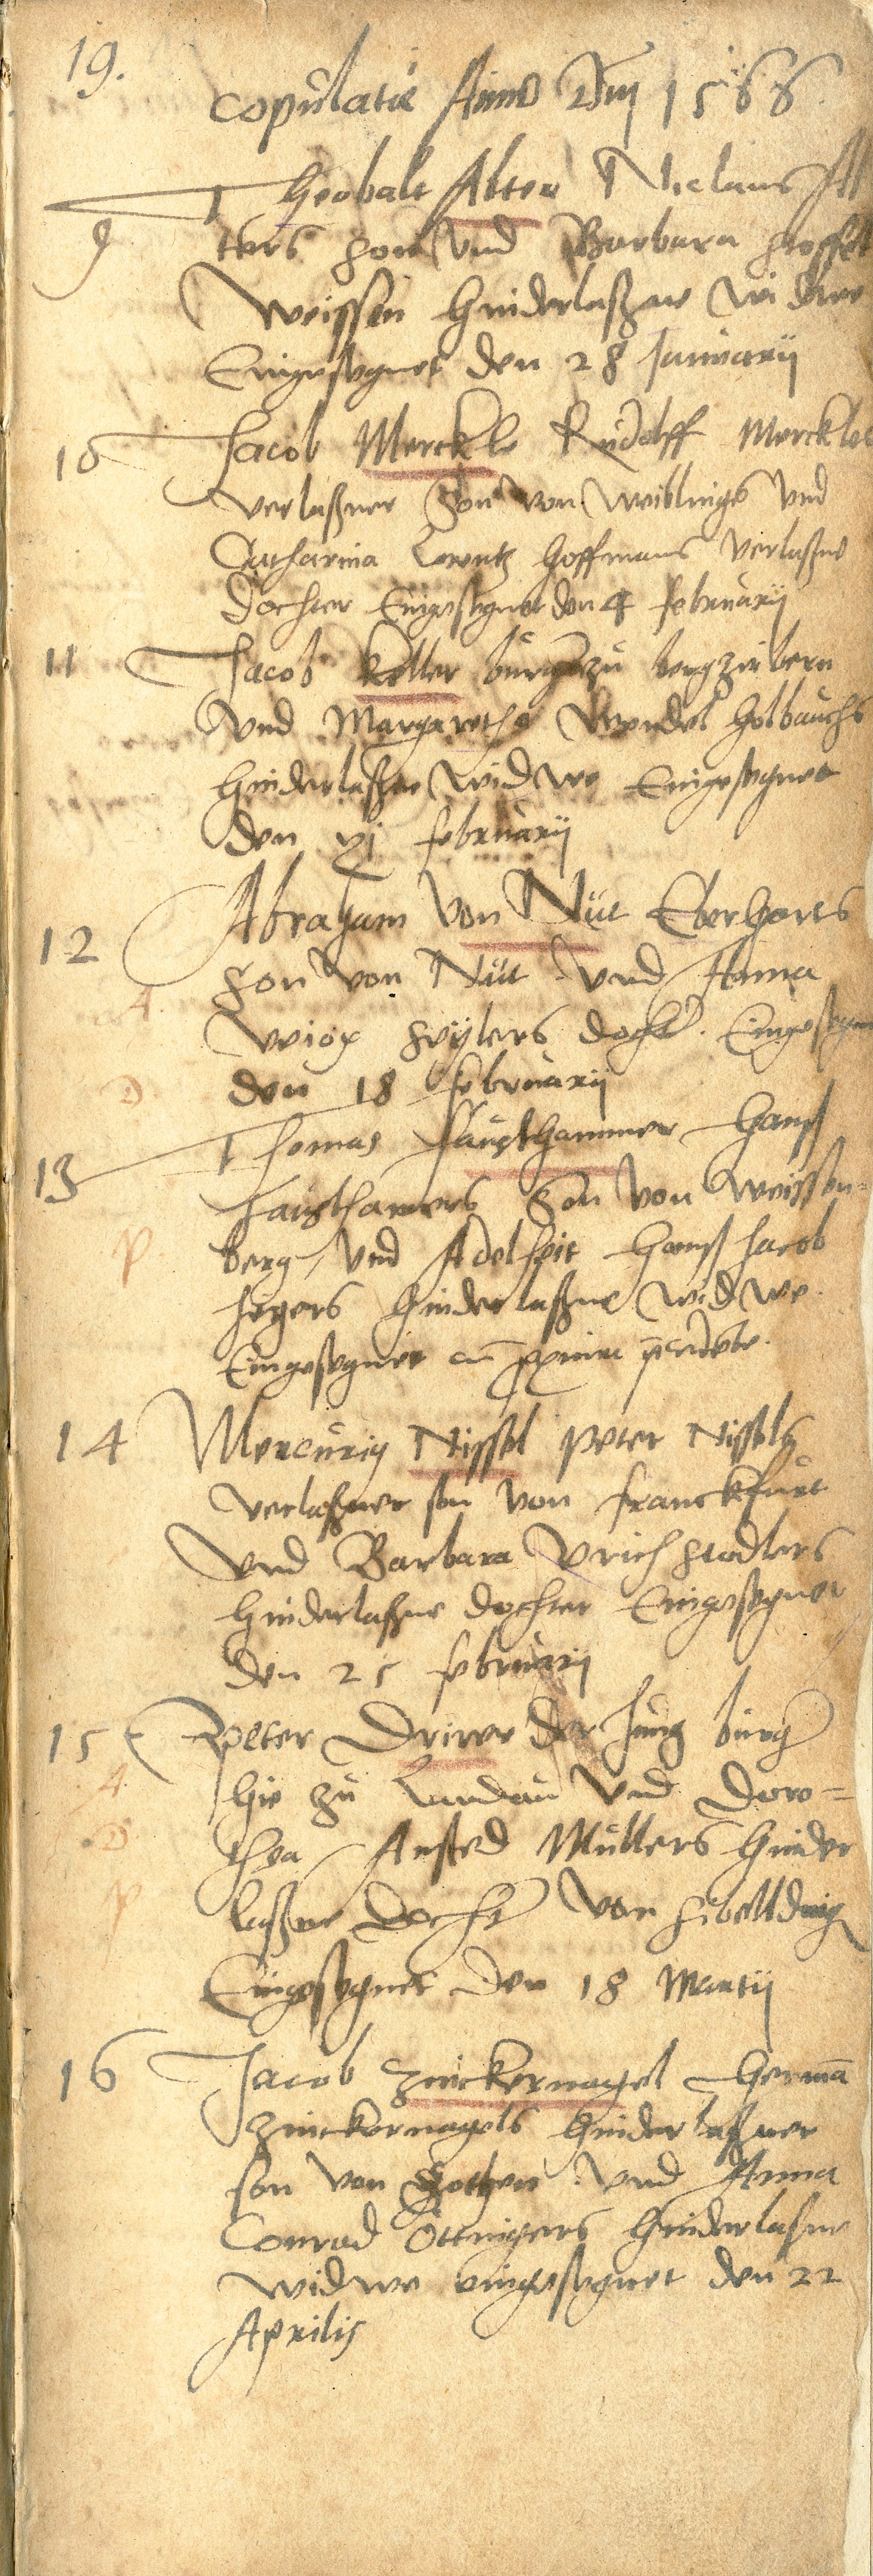 19.
Copulatie Anno Dnj 1566
9 Theobalt Alter Niclaus Al
ters son und Barbara stoffel
Weissen hinderlaßne widwe
Eingesegnet den 28 Januarij
10 Jacob Merckle Rudolff Merckles
verlaßner Son von Weiblinge und
Catharina Lorentz Hoffmans verlaßne
dochter Eingesegnet den 4 februarij
11 Jacob Keller burger zu bergzabern
und Margaretha Wendel Holbauchs
hinderlaßne widwe Eingesegnet
den xj februarij
12 Abraham von Nüt Eberharts
son von Nüt und Anna
Sŷlers docht. Eingesegnet
den 18 februarij
13 Thomas Fausthammer Hanß
Fausthamers Son von Weissen=
berg, und Adelheit Hanß Jacob
hinderlaßne widwe
Eingesegnet
14 Mercurij Nissel Peter Nissels
verlaßner son von franckfurt
und Barbara Vrich stadlers
hinderlaßne dochter Eingesegnet
den 25 februarij
15 Peter Driwe der Jung burger
A. hie zu Landau und Doro=
D. thea Ansted Müllers hinder
P laßne Docht von
Eingesegnet den 18 Martij
16 Jacob Zinckernagel Hermā
Zinckernagels hinderlaßner
son von und Anna
Conrad Öttingers hinderlaßne
widwe eingesegnet den 22
Aprilis